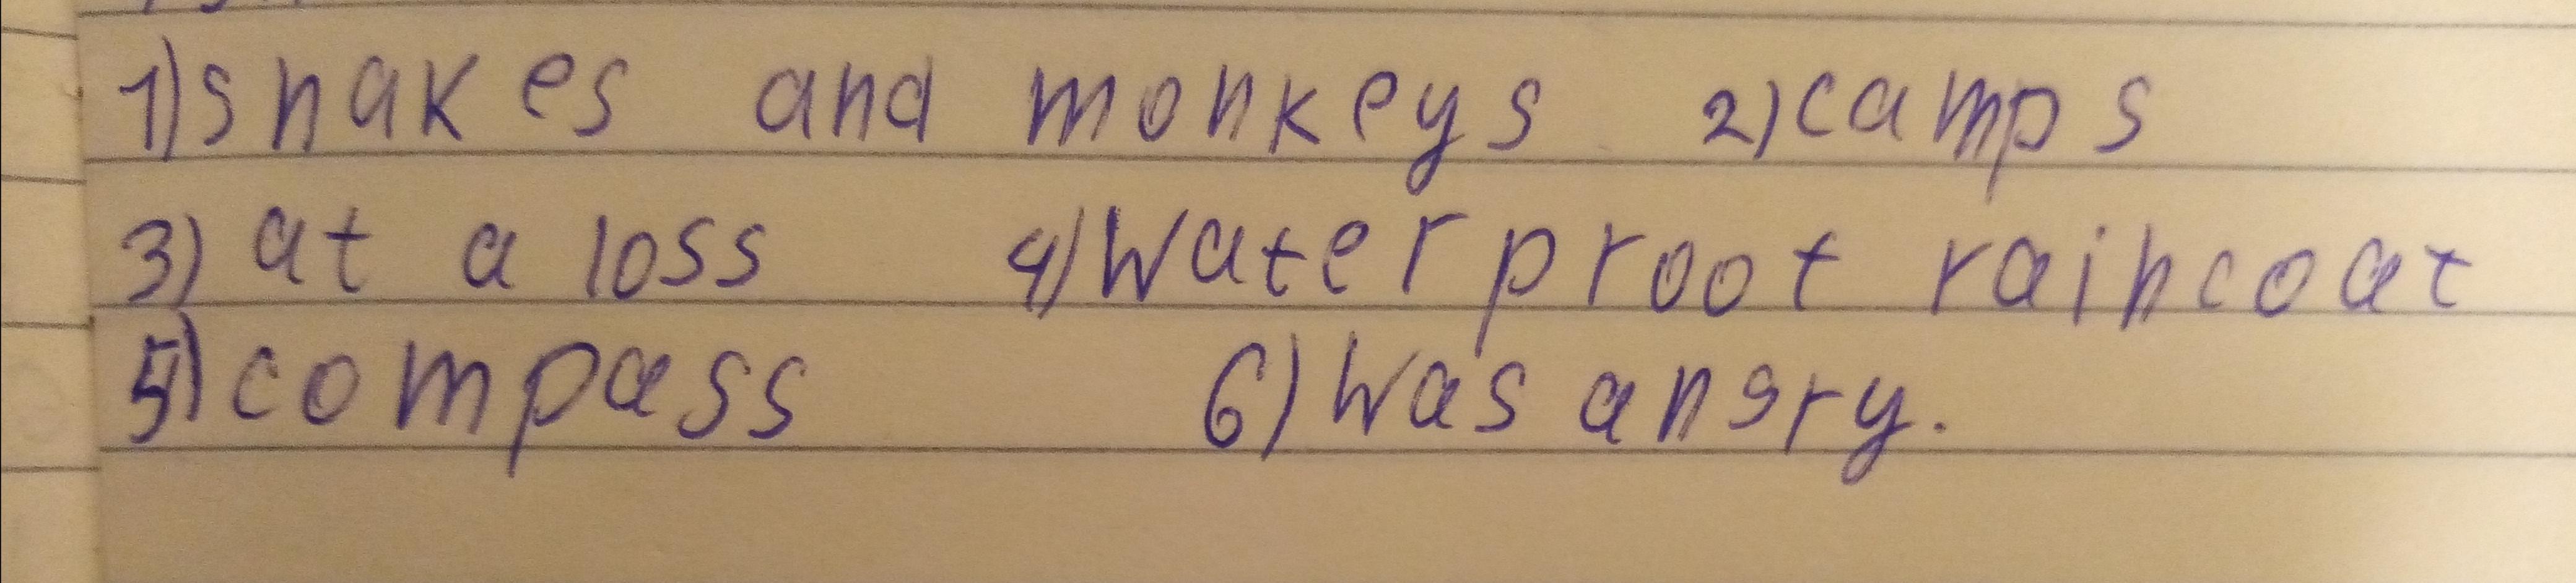 1) snakes and monkeys 2) camps
3) at a loss 4) Waterproot raincoat
5) compass 6) Was angry.